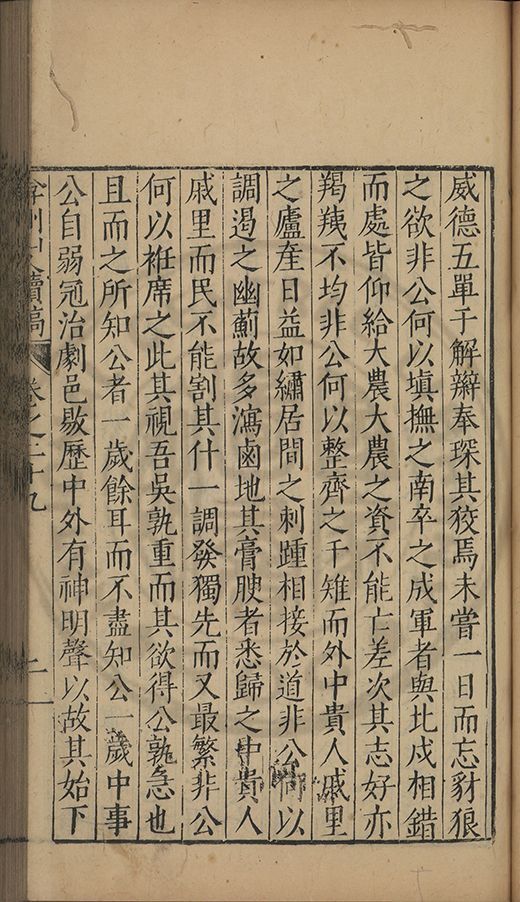 威德五單于解辮奉琛其狡焉未嘗一日而忘豺狼
之欲非公何以塡撫之南卒之成軍者與北戍相錯
而處皆仰給大農大農之資不能亡差次其志好亦
羯羠不均非公何以整齊之千雉而外中貴人戚里
之廬產日益如繡居間之刺踵相接於道非公何以
調遏之幽薊故多瀉鹵地其膏腴者悉歸之中貴人
戚里而民不能割其什一調發獨先而又最繁非公
何以袵席之此其視吾吳孰重而其欲得公孰急也
且而之所知公者一歲餘耳而不盡知公一歲中事
公自弱冠治劇邑敭歷中外有神明聲以故其始下
弇州山人續稿 卷之二十九